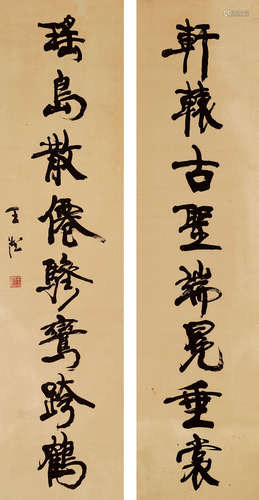 軒轅古聖端冕垂裳
瑤島散僊驂鸞跨鶴